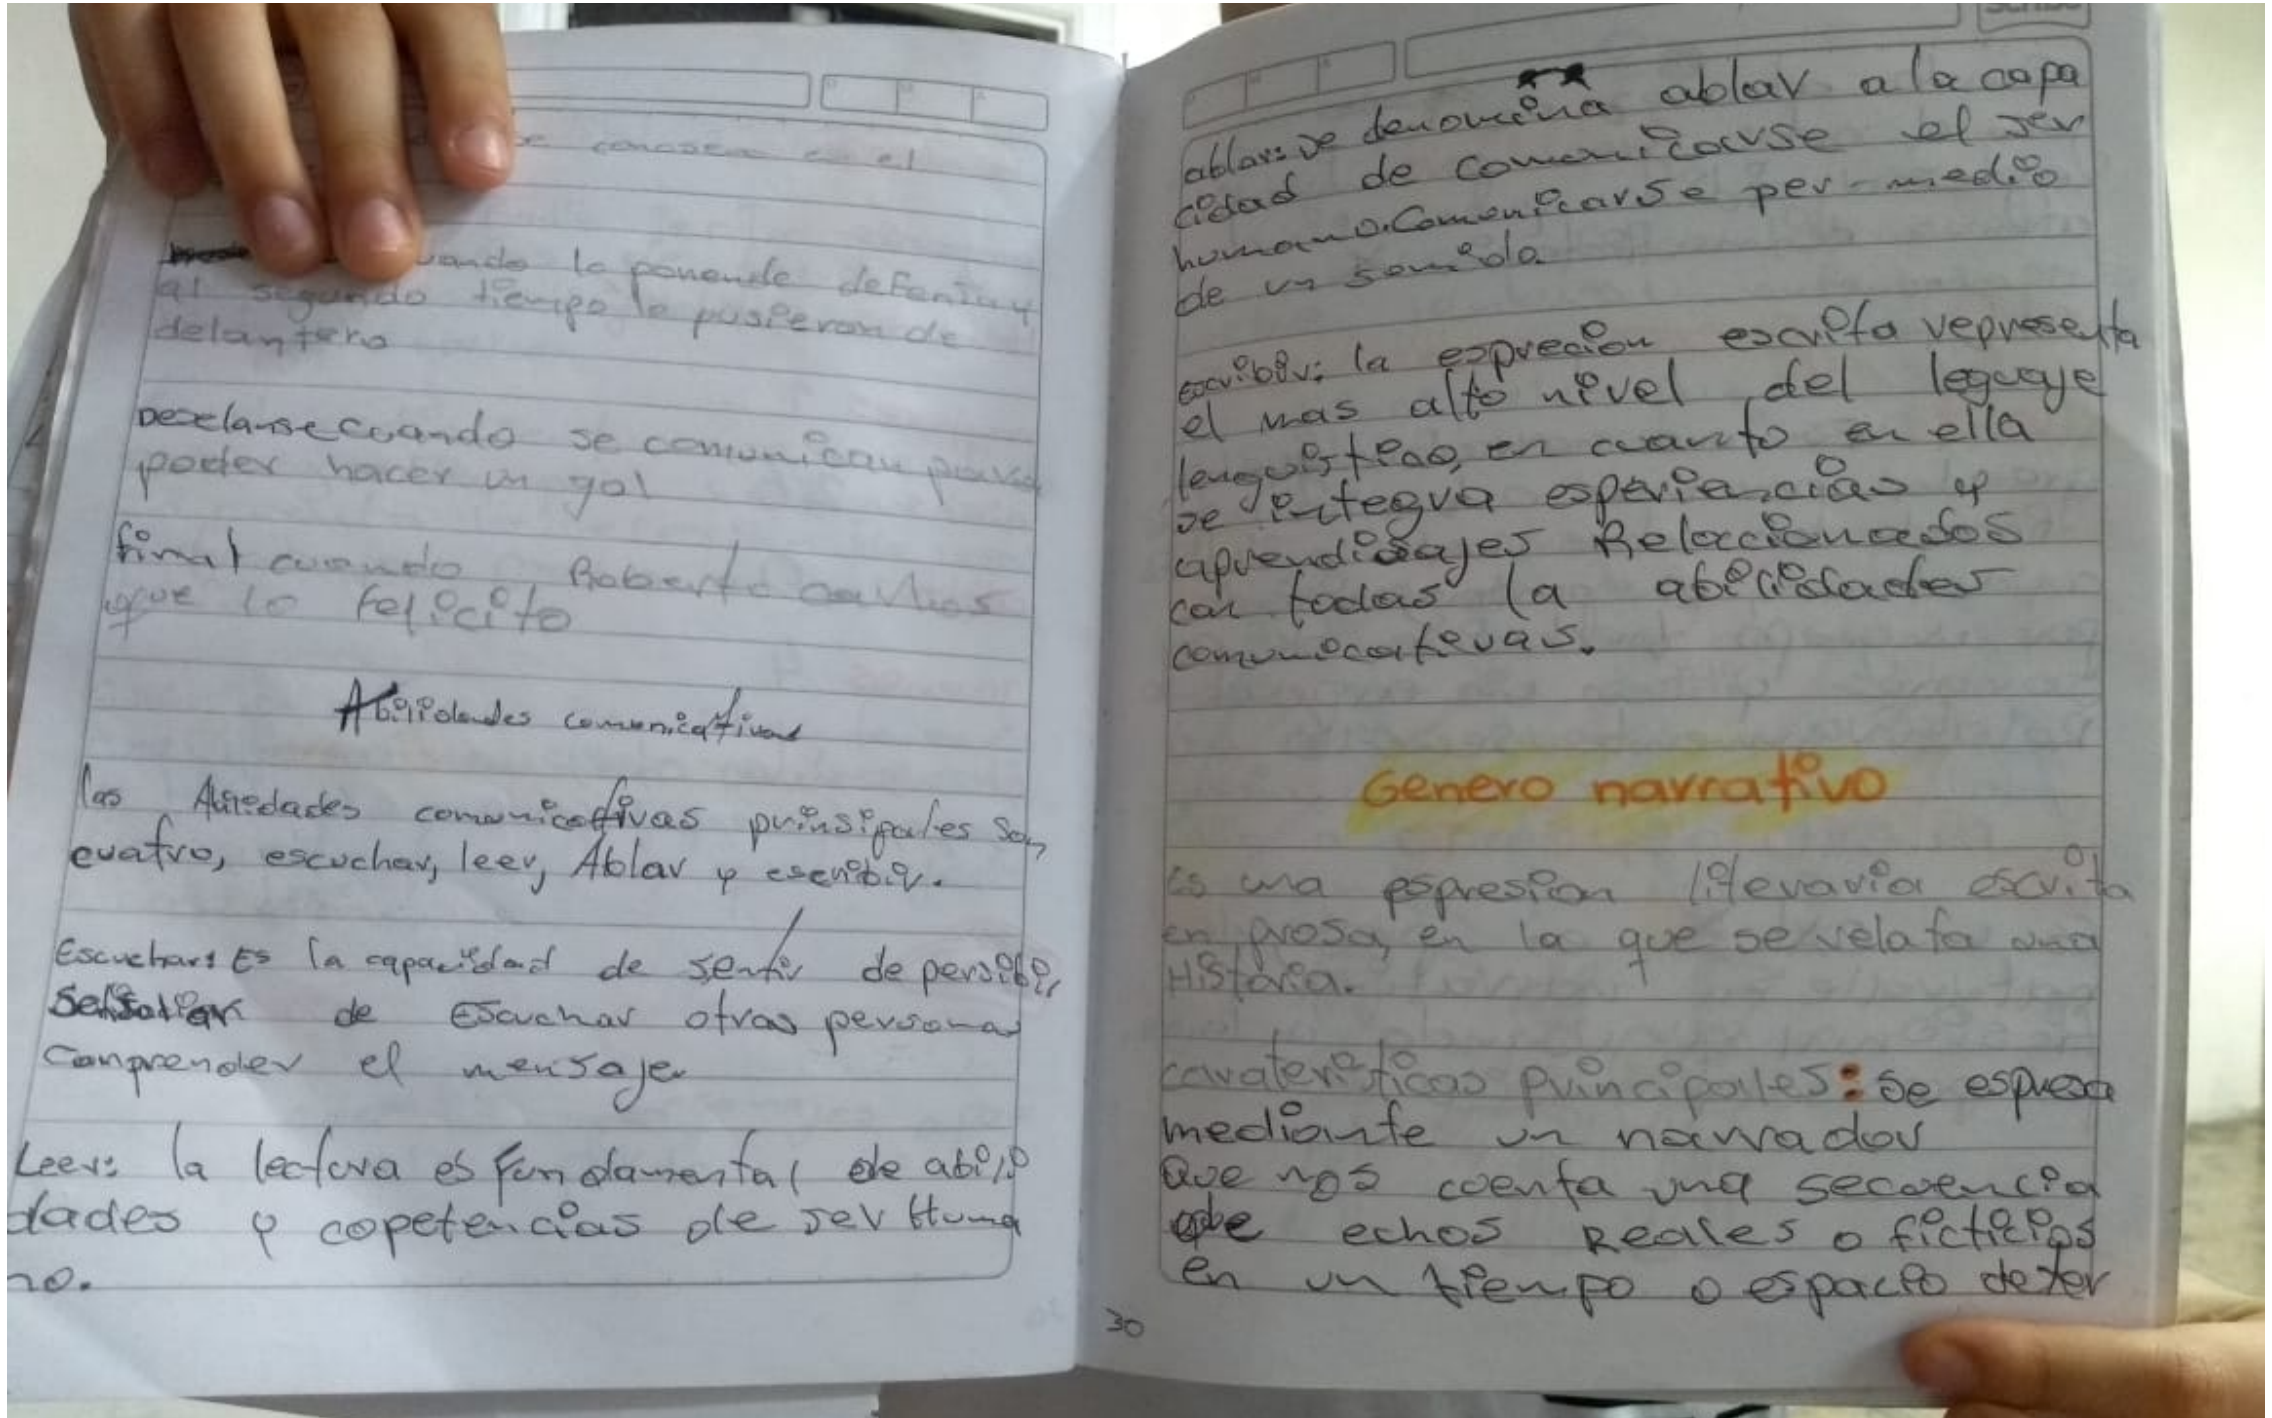 se conosen en el
cuando lo ponende defensa y
al segundo tiempo lo pusieron de
delantero
cuando se comunican para
poder hacer un gol
final cuando Roberto Carlos
que lo felicito
Abilidades comunicativas
las comunicativas prinsipales son
cuatro, escuchar, leer, Ablar y escribir.
Escuchar: Es la capacidad de sentir de persibir
de Escuchar otras personas
Comprender el mensaje
Leer: la lectura es fundamental de abili
dades y copetencias de ser Huma
no.
ablar: se denomina ablar a la capa
cidad de comunicarse el ser
humano. Comunicarse per medio
de un sonido
escribir: la esprecion escrita representa
el mas alto nivel del leguaje
en cuanto en ella
se integra esperiencias y
aprendisajes Relaccionados
con todas la abilidades
comunicativas.
Genero narrativo
es una espresion literaria escrita
en prosa, en la que se relata una
Historia.
carateristicas principales: se espresa
mediante un narrador
Que nos cuenta una secuencia
de echos Reales o ficticios
en un tiempo o espacio deter
30